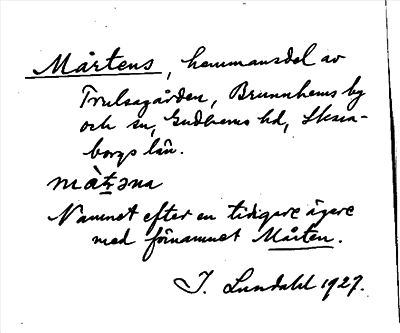 Mårtens, hemmansdel av
Trulsagården, Brunnhems by
och sn, Gudhems hd, Skara-
borgs län.
màʈəna
Namnet efter en tidigare ägare
med förnamnet Mårten.
I. Lundahl 1927.